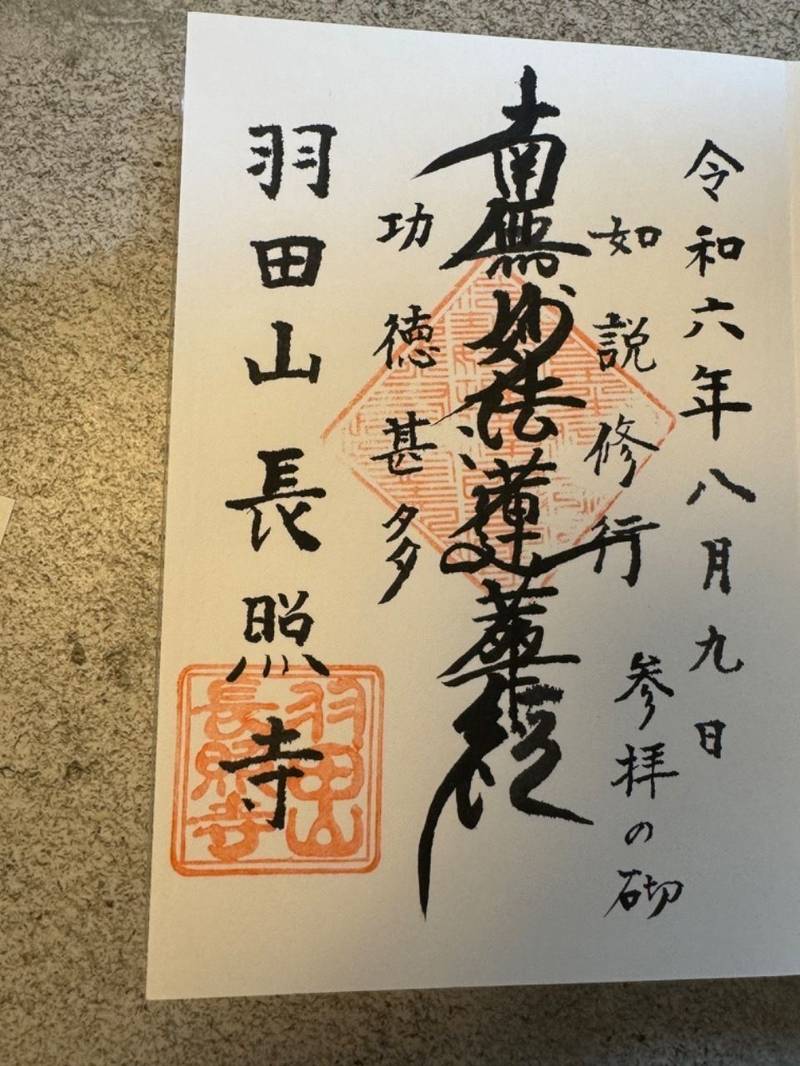 令和六年八月九日
参拝の砌
如説修行
南無妙法蓮華経
功徳甚多
羽田山長照寺
羽田山
長照寺